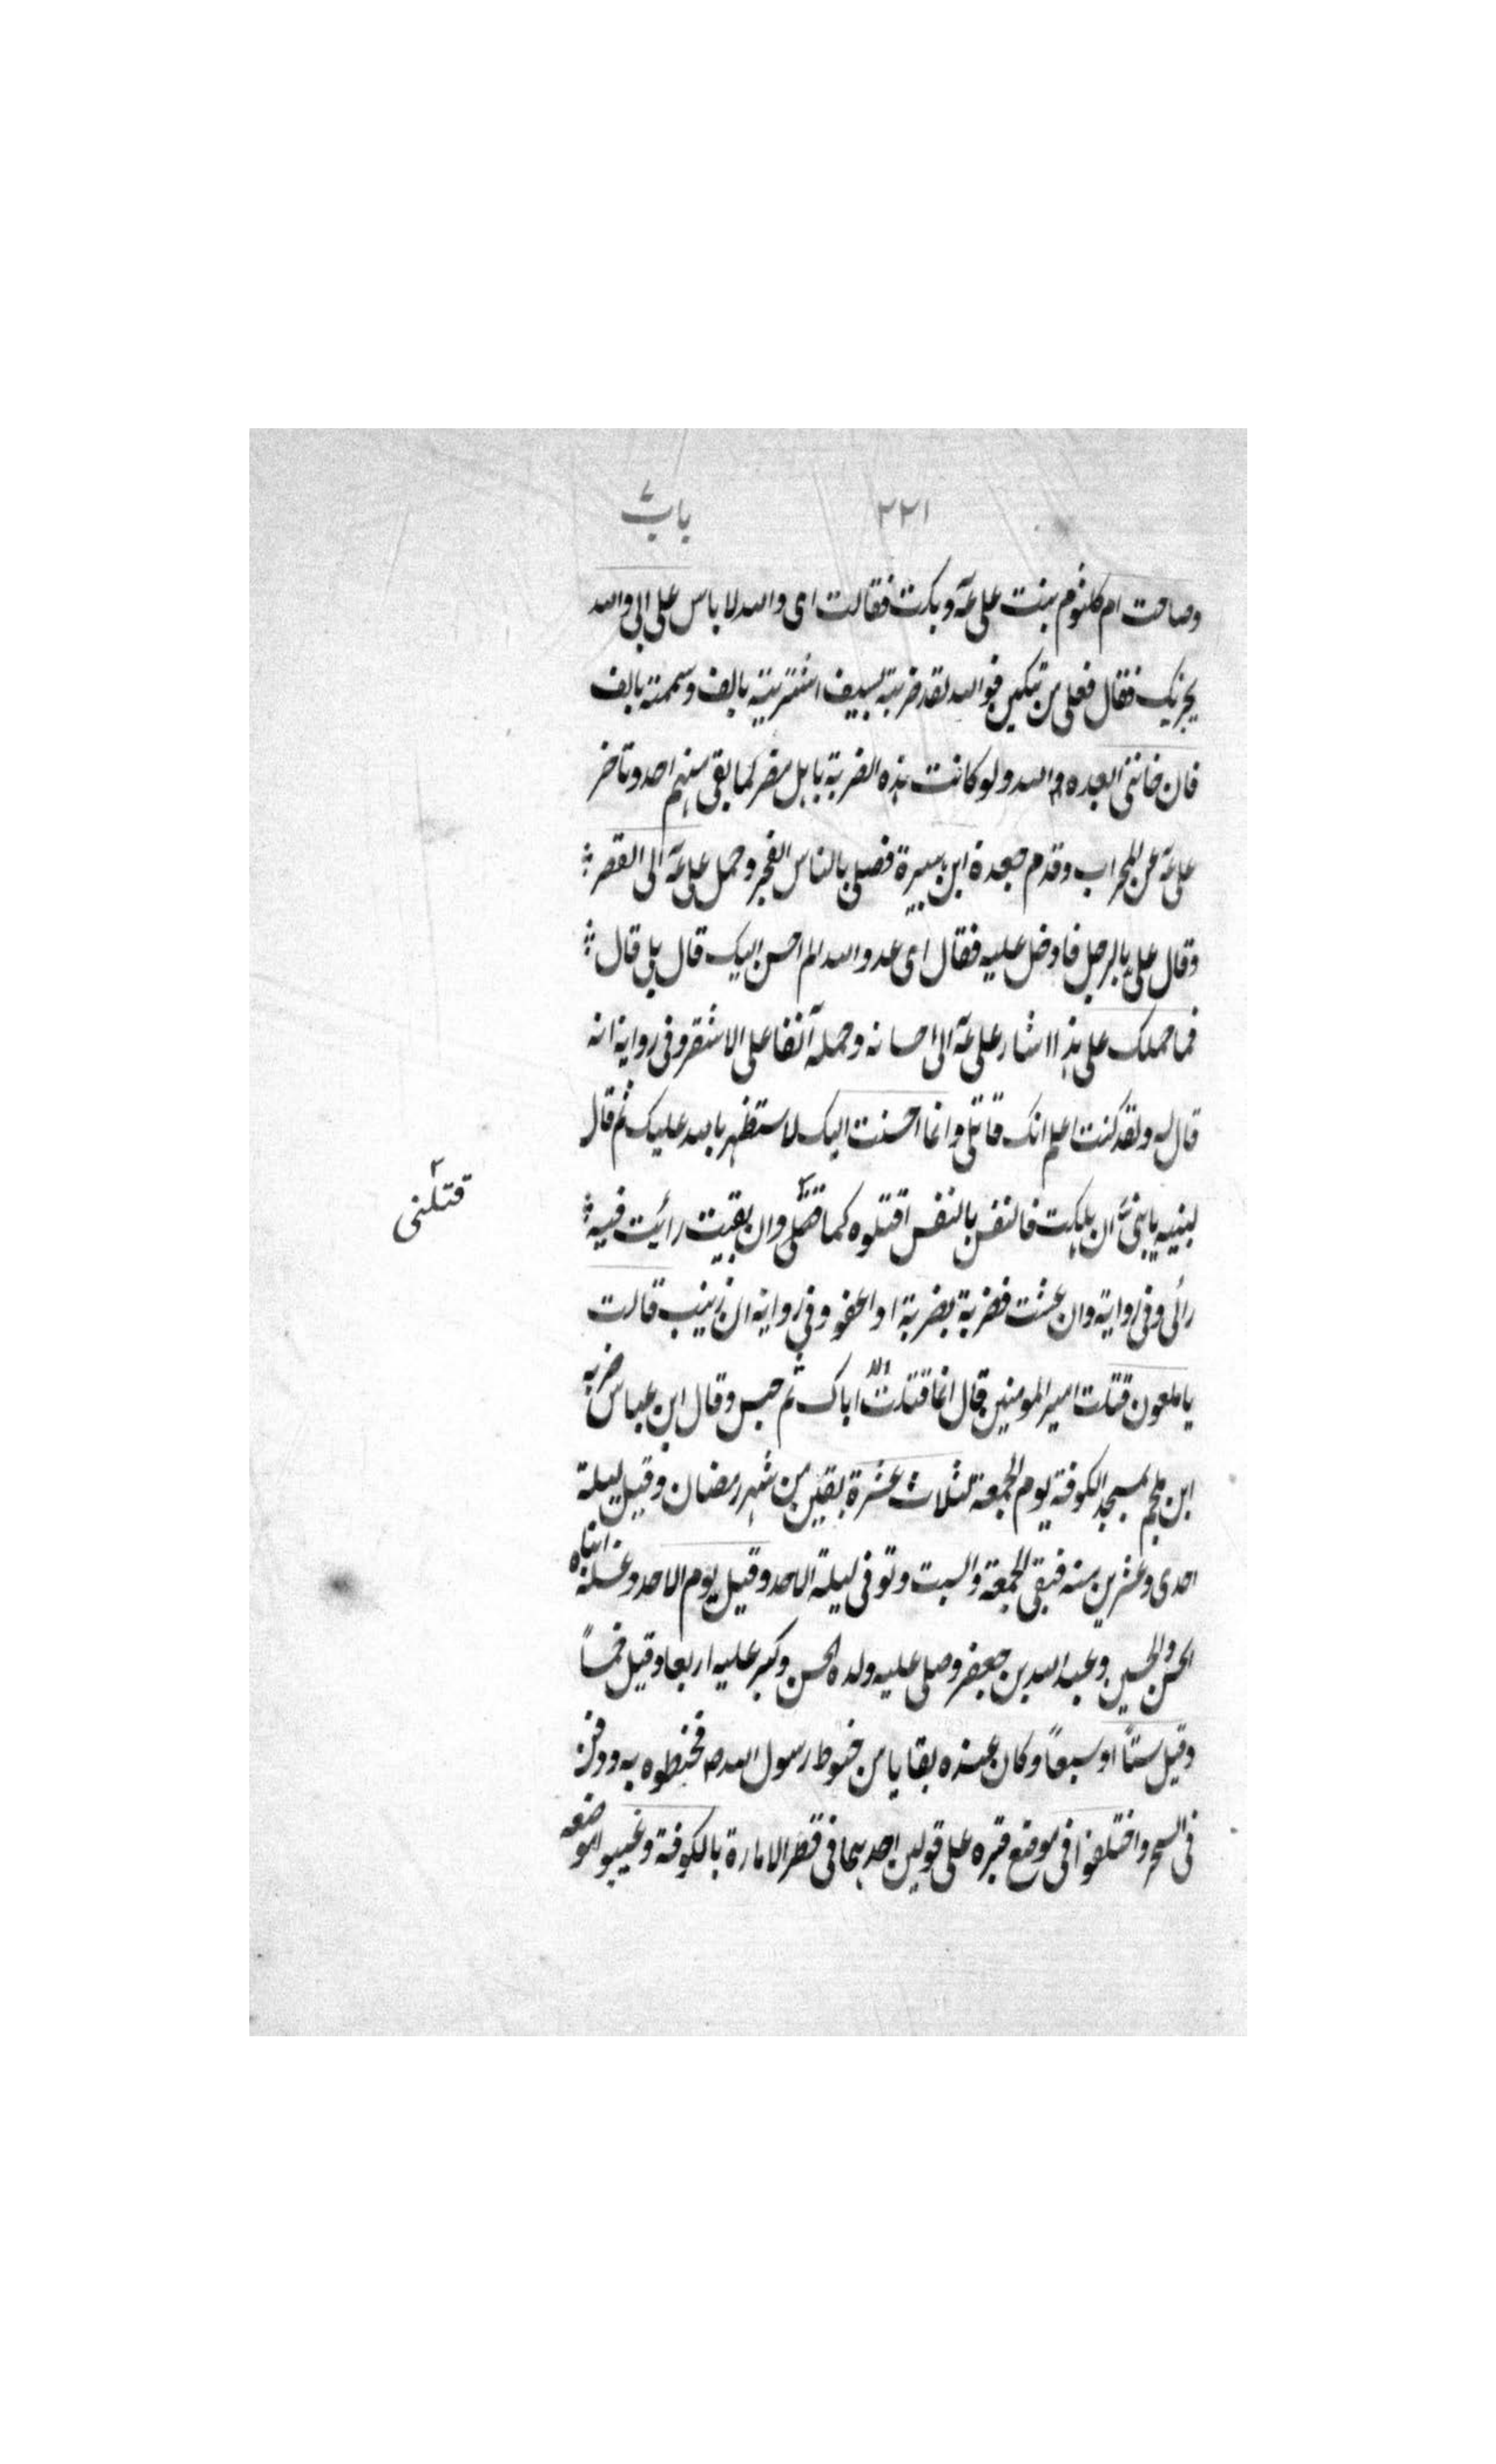 ٢٢١ باب ٧
وصاحت ام كلثوم بنت على عۤ وبكت فقالت اى والله لا باس على ابى والله
يخزيك فقال فعلى من تبكين فوالله لقد ضربته بسيف اشتريته بالف وسممته بالف
فان خاننى ابعده والله ولو كانت هذه الضربة باهل مضر لما بقى منهم احد وتاخر
على عۤ عن المحراب وقدم جعدة ابن هبيرة فصلى بالناس الفجر وحمل على عۤ الى القصر
وقال على بالرجل فادخل عليه فقال اى عدو الله الم احسن اليك قال بلى قال
فما حملك على هذا اشار على عۤ الى احسانه وحمله آنفا على الاشقر وفى رواية انه
قال له ولقد كنت اعلم انك قاتلى وانما احسنت اليك لاستظهر بالله عليك ثم قال
لبنيه يا بنى ان هلكت فالنفس بالنفس اقتلوه كما قتلنى وان بقيت رأيت فيه
رائى وفى رواية وان عشت فضربة بضربة او اعفو وفى رواية ان زينب قالت
يا ملعون قتلت امير المومنين قال انما قتلت اباك ثم حبس وقال ابن عباس ضربه
ابن ملجم بمسجد الكوفة يوم الجمعة لثلاث عشرة بقين من شهر رمضان وقيل ليلة
احدى وعشرين منه فبقى الجمعة والسبت وتوفى ليلة الاحد وقيل يوم الاحد وغسله ابناه
الحسن والحسين وعبد الله بن جعفر وصلى عليه ولده الحسن وكبر عليه اربعا وقيل خمساً
وقيل ستاً او سبعاً وكان عنده بقايا من حنوط رسول الله ص فحنطوه به ودفن
فى السحر واختلفوا فى موضع قبره على قولين احدهما فى قصر الامارة بالكوفة وغيبوا موضعه
قتلنى